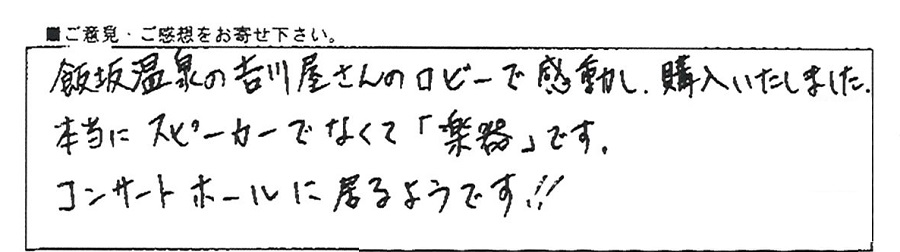 ■ご意見・ご感想をお寄せ下さい。
飯坂温泉の吉川屋さんのロビーで感動し、購入いたしました。
本当にスピーカーでなくて「楽器」です。
コンサートホールに居るようです!!